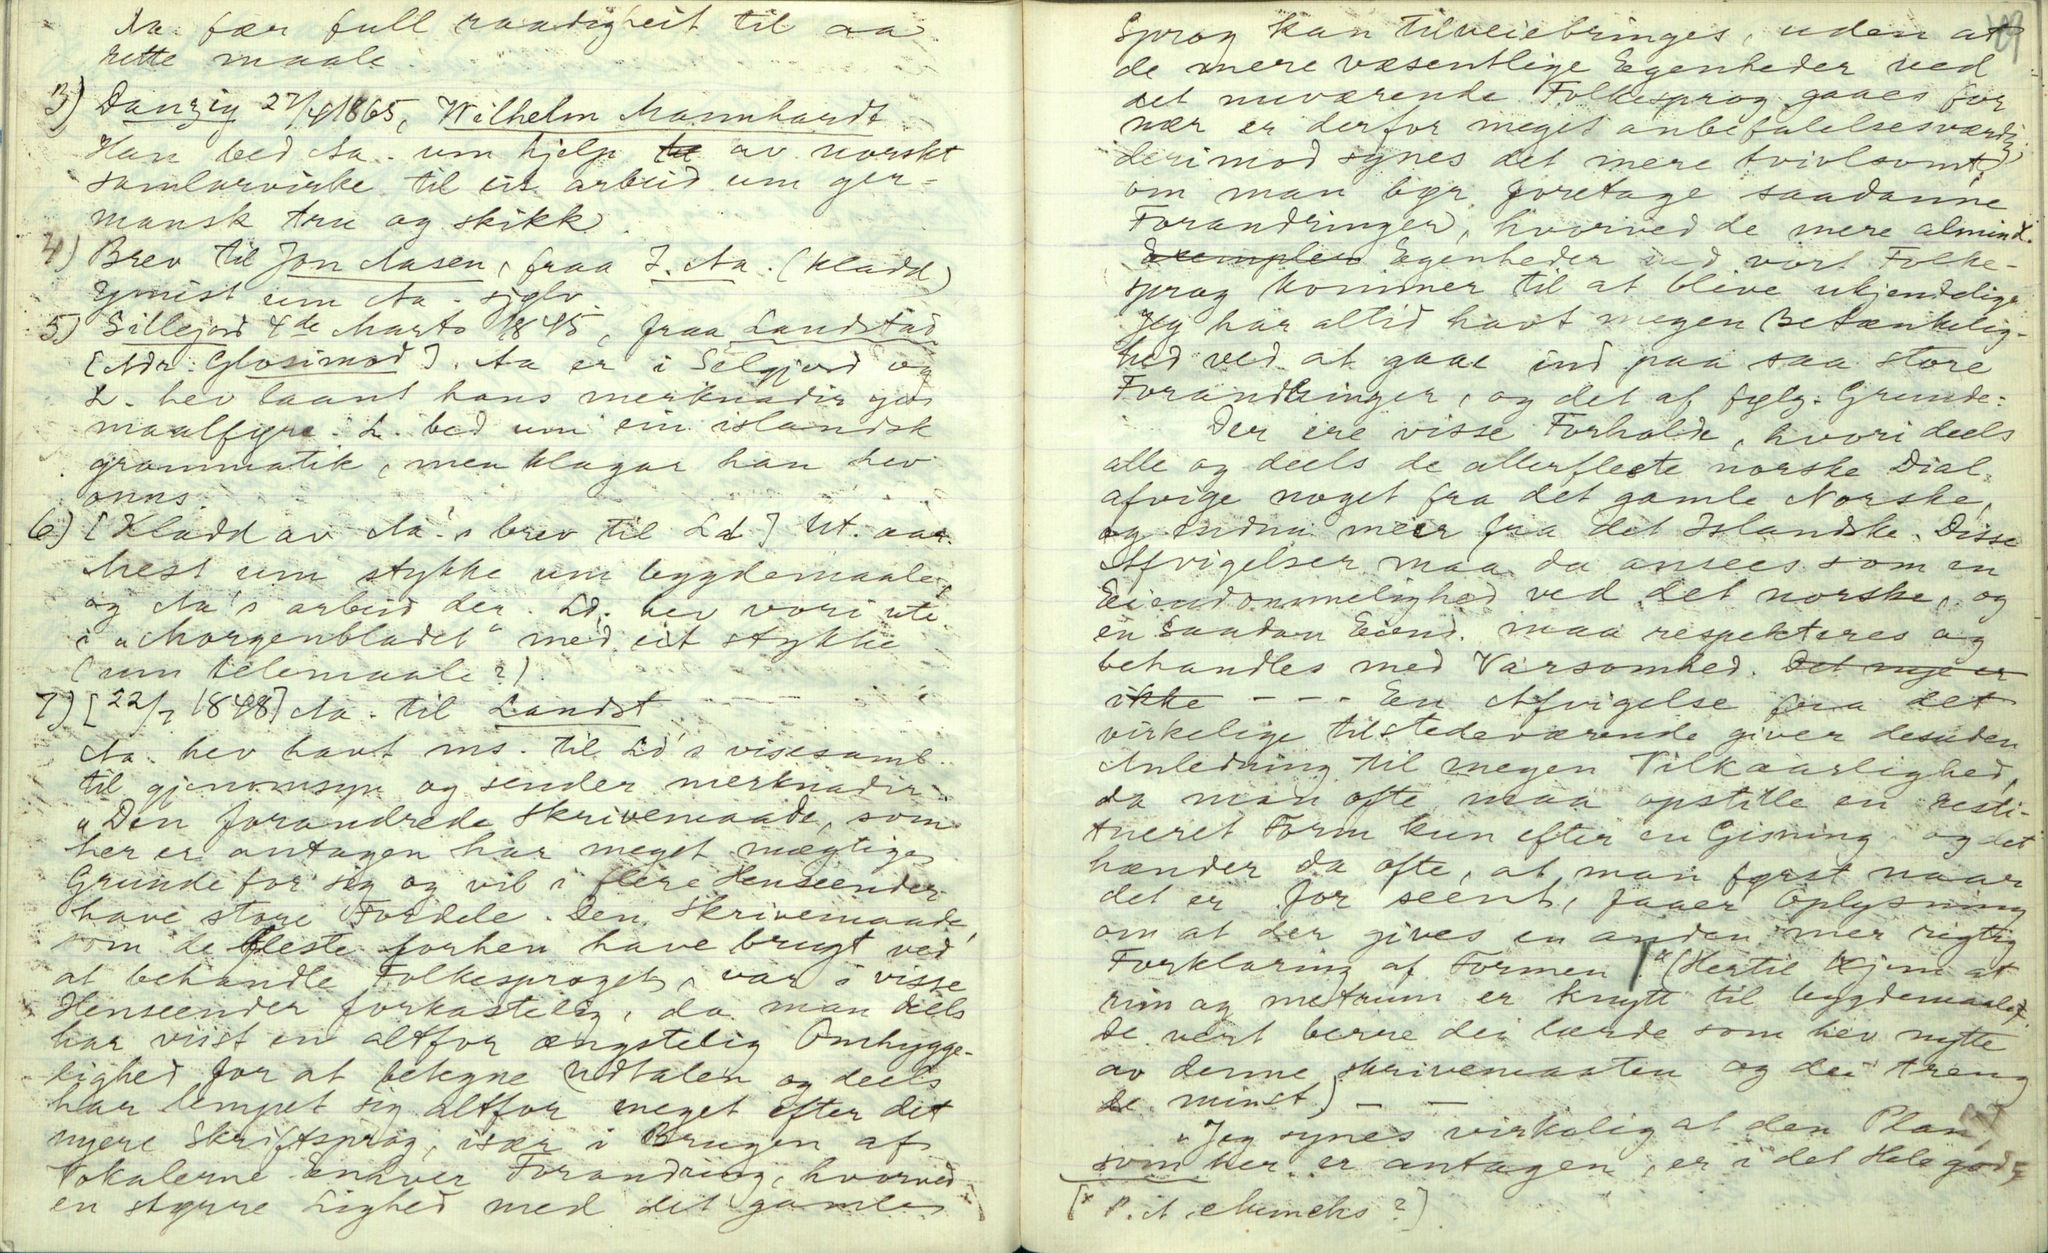 Aa. fær full raadigheit til aa
rette maale.
3) Danzig 27/4 1865, Wilhelm Mannhardt
Han bed Aa. um hjelp til av norskt
samlarvirke til eit arbeid um ger-
mansk tru og skikk.
4) Brev til Jon Aasen, fraa I. Aa. (kladd)
Ymist um Aa. sjølv.
5) Sillejord 4de Marts 1845, fraa Landstad
[Adr. Glosimod]. Aa er i Selgjord og
L. hev laant hans merknadir yvi
maalføre. L. bed um ein islandsk
grammatik, men klagar han hev
onns.
6) [Kladd av Aa's brev til Ld] Ut. aar.
Mest um stykke um bygdemaale,
og Aa's arbeid der. Ld. hev vori ute
i "Morgenbladet" med eit stykke
(um telemaale?).
7) [22/7 1848] Aa. til Landst
Aa. hev havt ms. til Ld's visesaml.
til gjenomsyn og sender merknadir.
"Den forandrede Skrivemaade, som
her er antagen har meget mægtige
Grunde for sig og vil i flere Henseender
have store Fordele. Den Skrivemaade,
som de fleste forhen have brugt ved
at behandle Folkesproget, var i visse
Henseender forkastelig, da man deels
har viist en altfor ængstelig Omhygge-
lighed for at betegne Udtalen og deels
har lempet sig altfor meget efter det
nyere Skriftsprog, især i Brugen af
Vokalerne. Enhver Forandring, hvorved
en større Lighed med det gamle
49
Sprog kan tilveiebringes, uden at
de mere væsentlige Egenheder ved
det nuværende Folkesprog gaaes for
nær er derfor meget anbefalelsesværdig,
derimod synes det mere tvivlsomt,
om man bør foretage saadanne
Forandringer, hvorved de mere almind.
Exempler Egenheder ved vort Folke-
sprog kommer til at blive ukjendelige
Jeg har altid havt megen Betænkelig-
hed ved at gaae ind paa saa store
Forandringer, og det af følg. Grunde:
Der ere visse Forholde, hvori deels
alle og deels de allerfleste norske Dial.
afvige noget fra det gamle Norske,
og endnu meer fra det Islandske. Disse
Afvigelser maa da ansees som en
Eiendommelighed ved det norske, og
en saadan Eiend. maa respekteres og
behandles med Varsomhed. Det nye er
ikke - - - En Afvigelse fra det
virkelige tilstedeværende giver desuden
Anledning til megen Vilkaarlighed,
da man ofte maa opstille en resti-
tueret Form kun efter en Gisning og det
hænder da ofte, at man først naar
det er for seent, faaer Oplysning
om at der gives en anden mer rigtig
Forklaring af Formen." (Hertil kjem at
rim og metrum er knytt til bygdemaalet.
De vert berre dei lærde som hev nytte
av denne skrivemaaten og dei treng
de minst) - -
"Jeg synes virkelig at den Plan,
som her er antagen, er i det Hele god,
[x P. A. Munchs?]